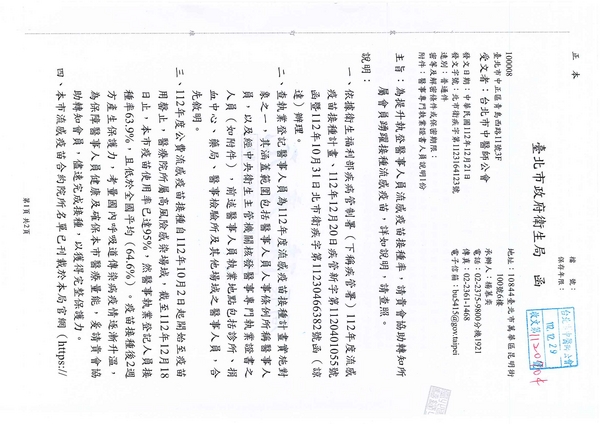 正本
檔　號：
保存年限：
臺北市政府衛生局　函
地址：10844臺北市萬華區昆明街
100號6樓
承辦人：楊慕奕
電話：02-2375-9800分機1921
傳真：02-2361-1468
電子信箱：bu5415@gov.taipei
100008
臺北市中正區青島西路11號3F
受文者：台北市中醫師公會
發文日期：中華民國112年12月21日
發文字號：北市衛疾字第1123164123號
速別：普通件
密等及解密條件或保密期限：
附件：醫事專門執業證書人員說明1份
主旨：為提升執登醫事人員流感疫苗接種率，請貴會協助轉知所
屬會員踴躍接種流感疫苗，詳如說明，請查照。
說明：
一、依據衛生福利部疾病管制署（下稱疾管署）112年度流感
疫苗接種計畫、112年12月20日疾管新字第1120401055號
函暨112年10月31日北市衛疾字第11230466382號函（諒
達）辦理。
二、查執業登記醫事人員為112年度流感疫苗接種計畫實施對
象之一，其涵蓋範圍包括醫事人員人事條例所稱醫事人
員，以及經中央衛生主管機關核發醫事專門執業證書之
人員（如附件），前述醫事人員執業地點包括診所、捐
血中心、藥局、醫事檢驗所及其他場域之醫事人員，合
先敘明。
三、112年度公費流感疫苗接種自112年10月2日起開始至疫苗
用罄止，醫療院所屬高風險感染場域，截至112年12月18
日止，本市疫苗使用率已達95%，然醫事執業登記人員接
種率63.9%，且低於全國平均（64.6%）。疫苗接種後2週
方產生保護力，考量國內呼吸道傳染病疫情逐漸升溫，
為保障醫事人員健康及確保本市醫療量能，爰請貴會協
助轉知會員，儘速完成接種，以獲得完整保護力。
四、本市流感疫苗合約院所名單已刊載於本局官網（https://
第1頁 共2頁